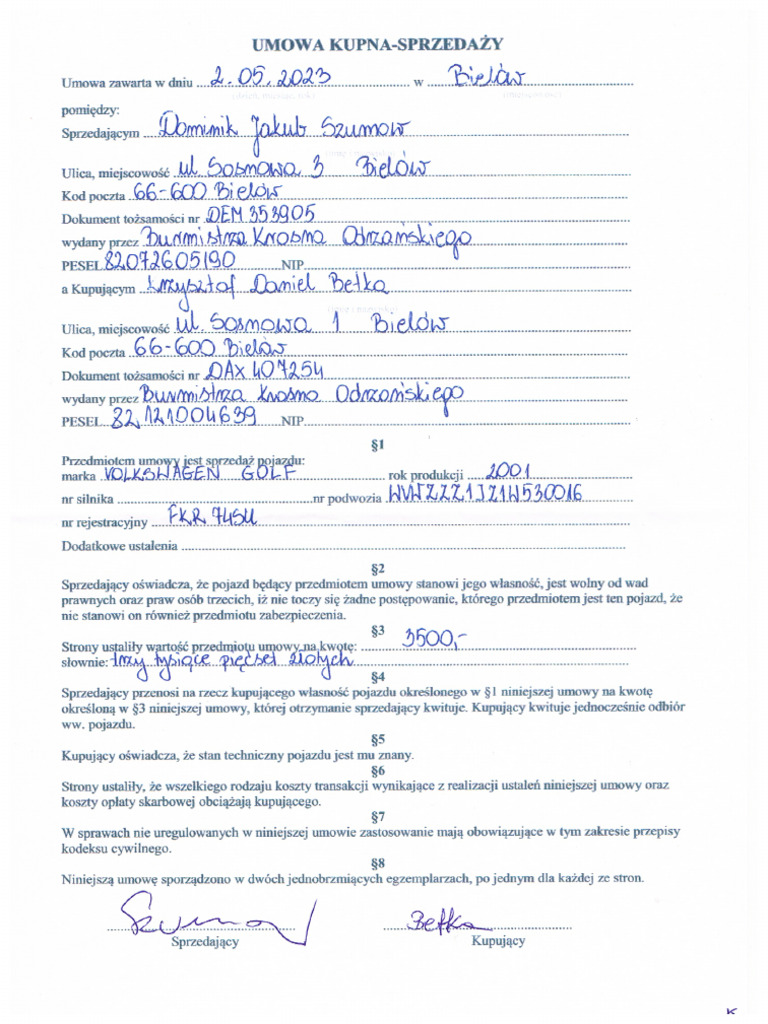 UMOWA KUPNA-SPRZEDAŻY
Umowa zawarta w dniu 2.05.2023 w Bielów
pomiędzy:
Sprzedającym Dominik Jakub Szumow
Ulica, miejscowość ul Sosnowa 3 Bielów
Kod poczta 66-600 Bielów
Dokument tożsamości nr DEM 353905
wydany przez Burmistrza Krosna Odrzańskiego
PESEL 82072605190 NIP
a Kupującym Krzysztof Daniel Betka
Ulica, miejscowość ul. Sosnowa 1 Bielów
Kod poczta 66-600 Bielów
Dokument tożsamości nr DAX 407254
wydany przez Burmistrza Krosna Odrzańskiego
PESEL 82121004639 NIP
§1
Przedmiotem umowy jest sprzedaż pojazdu:
marka VOLKSWAGEN GOLF rok produkcji 2001
nr silnika nr podwozia WVWZZZ1JZ1W530016
nr rejestracyjny FKR 745U
Dodatkowe ustalenia
§2
Sprzedający oświadcza, że pojazd będący przedmiotem umowy stanowi jego własność, jest wolny od wad
prawnych oraz praw osób trzecich, iż nie toczy się żadne postępowanie, którego przedmiotem jest ten pojazd, że
nie stanowi on również przedmiotu zabezpieczenia.
§3
Strony ustaliły wartość przedmiotu umowy na kwotę: 3500,-
słownie: trzy tysiące pięćset złotych
§4
Sprzedający przenosi na rzecz kupującego własność pojazdu określonego w §1 niniejszej umowy na kwotę
określoną w §3 niniejszej umowy, której otrzymanie sprzedający kwituje. Kupujący kwituje jednocześnie odbiór
ww. pojazdu.
§5
Kupujący oświadcza, że stan techniczny pojazdu jest mu znany.
§6
Strony ustaliły, że wszelkiego rodzaju koszty transakcji wynikające z realizacji ustaleń niniejszej umowy oraz
koszty opłaty skarbowej obciążają kupującego.
§7
W sprawach nie uregulowanych w niniejszej umowie zastosowanie mają obowiązujące w tym zakresie przepisy
kodeksu cywilnego.
§8
Niniejszą umowę sporządzono w dwóch jednobrzmiących egzemplarzach, po jednym dla każdej ze stron.
Szumow Betka
Sprzedający Kupujący